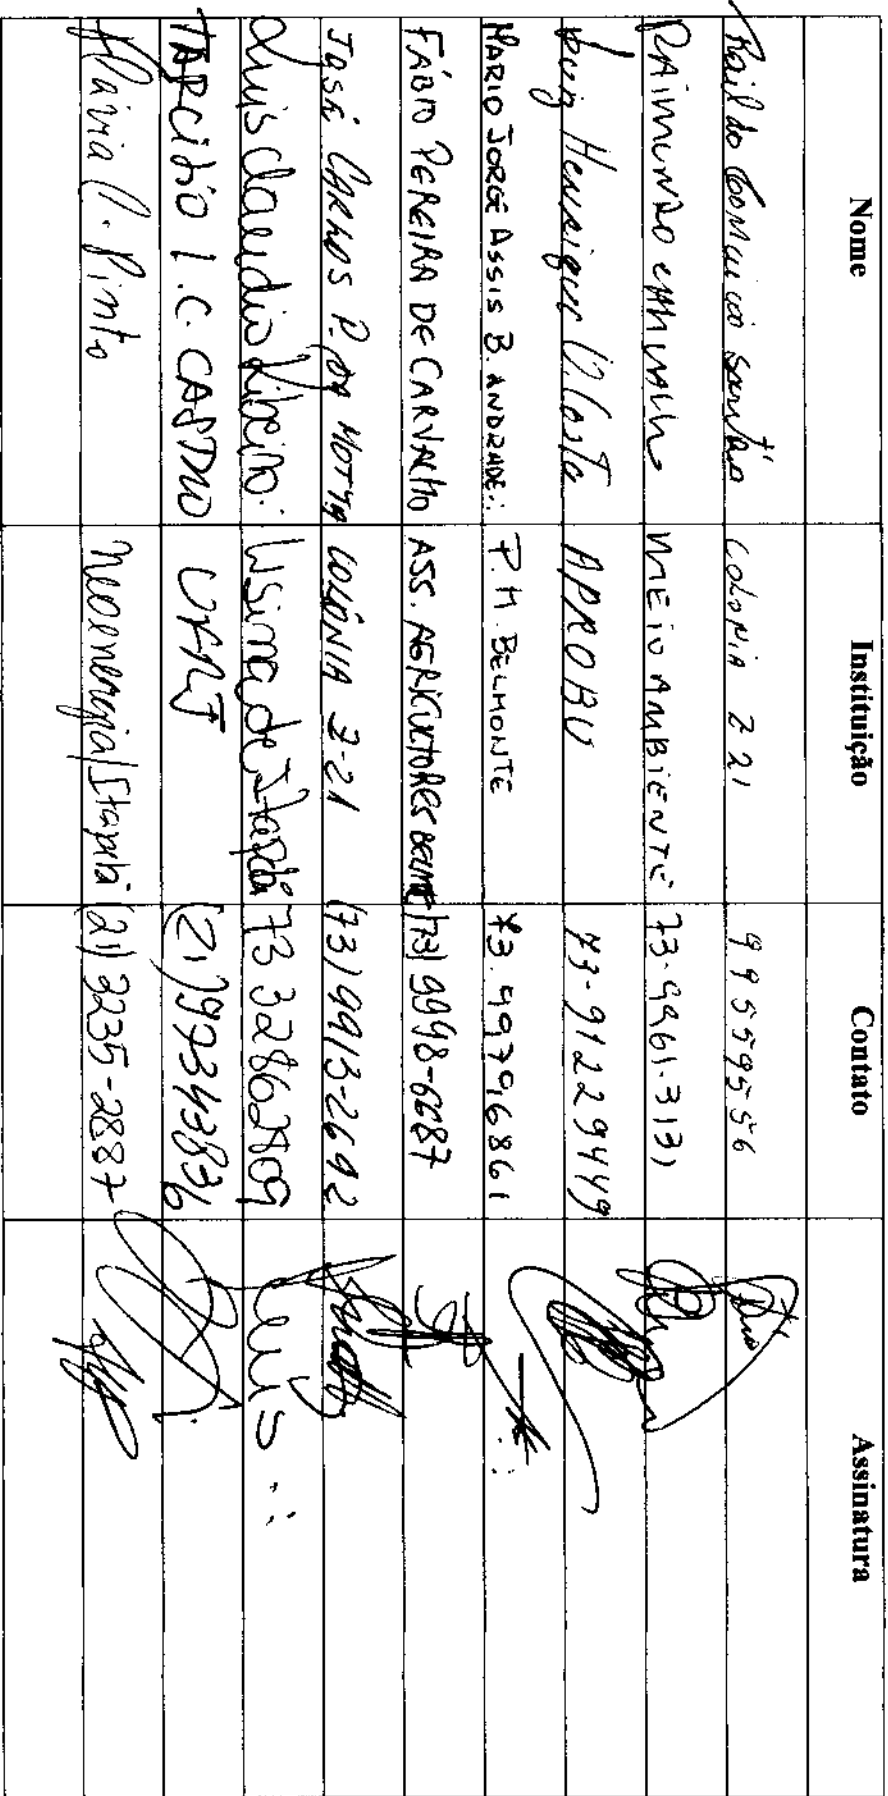 Nome Instituição Contato Assinatura
Raildo Conceição Santos COLONIA Z 21 995595556
RAIMUNDO MEIO AMBIENTE 73.9961.3131
Luiz Henrique O. Costa APROBU 73-91229449
MARIO JORGE ASSIS B. ANDRADE P.M. BELMONTE 73.99796861
FÁBIO PEREIRA DE CARVALHO ASS. AGRICULTORES (73) 9998-6087
JOSÉ CARLOS P. DA MOTTA COLÔNIA Z-21 (73) 9913-2692
Luis Claudio Ribeiro. Usina de Itapebi 73 32862809 Luis
TARCITIO I.C. CASTRO (21) 97343836
Flávia C. Pinto Neoenergia/Itapebi (21) 3235-2887